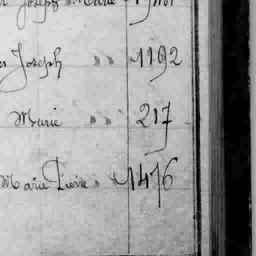 Joseph Marie
Joseph " 1192
Marie " 217
Marie Pierre " 1476